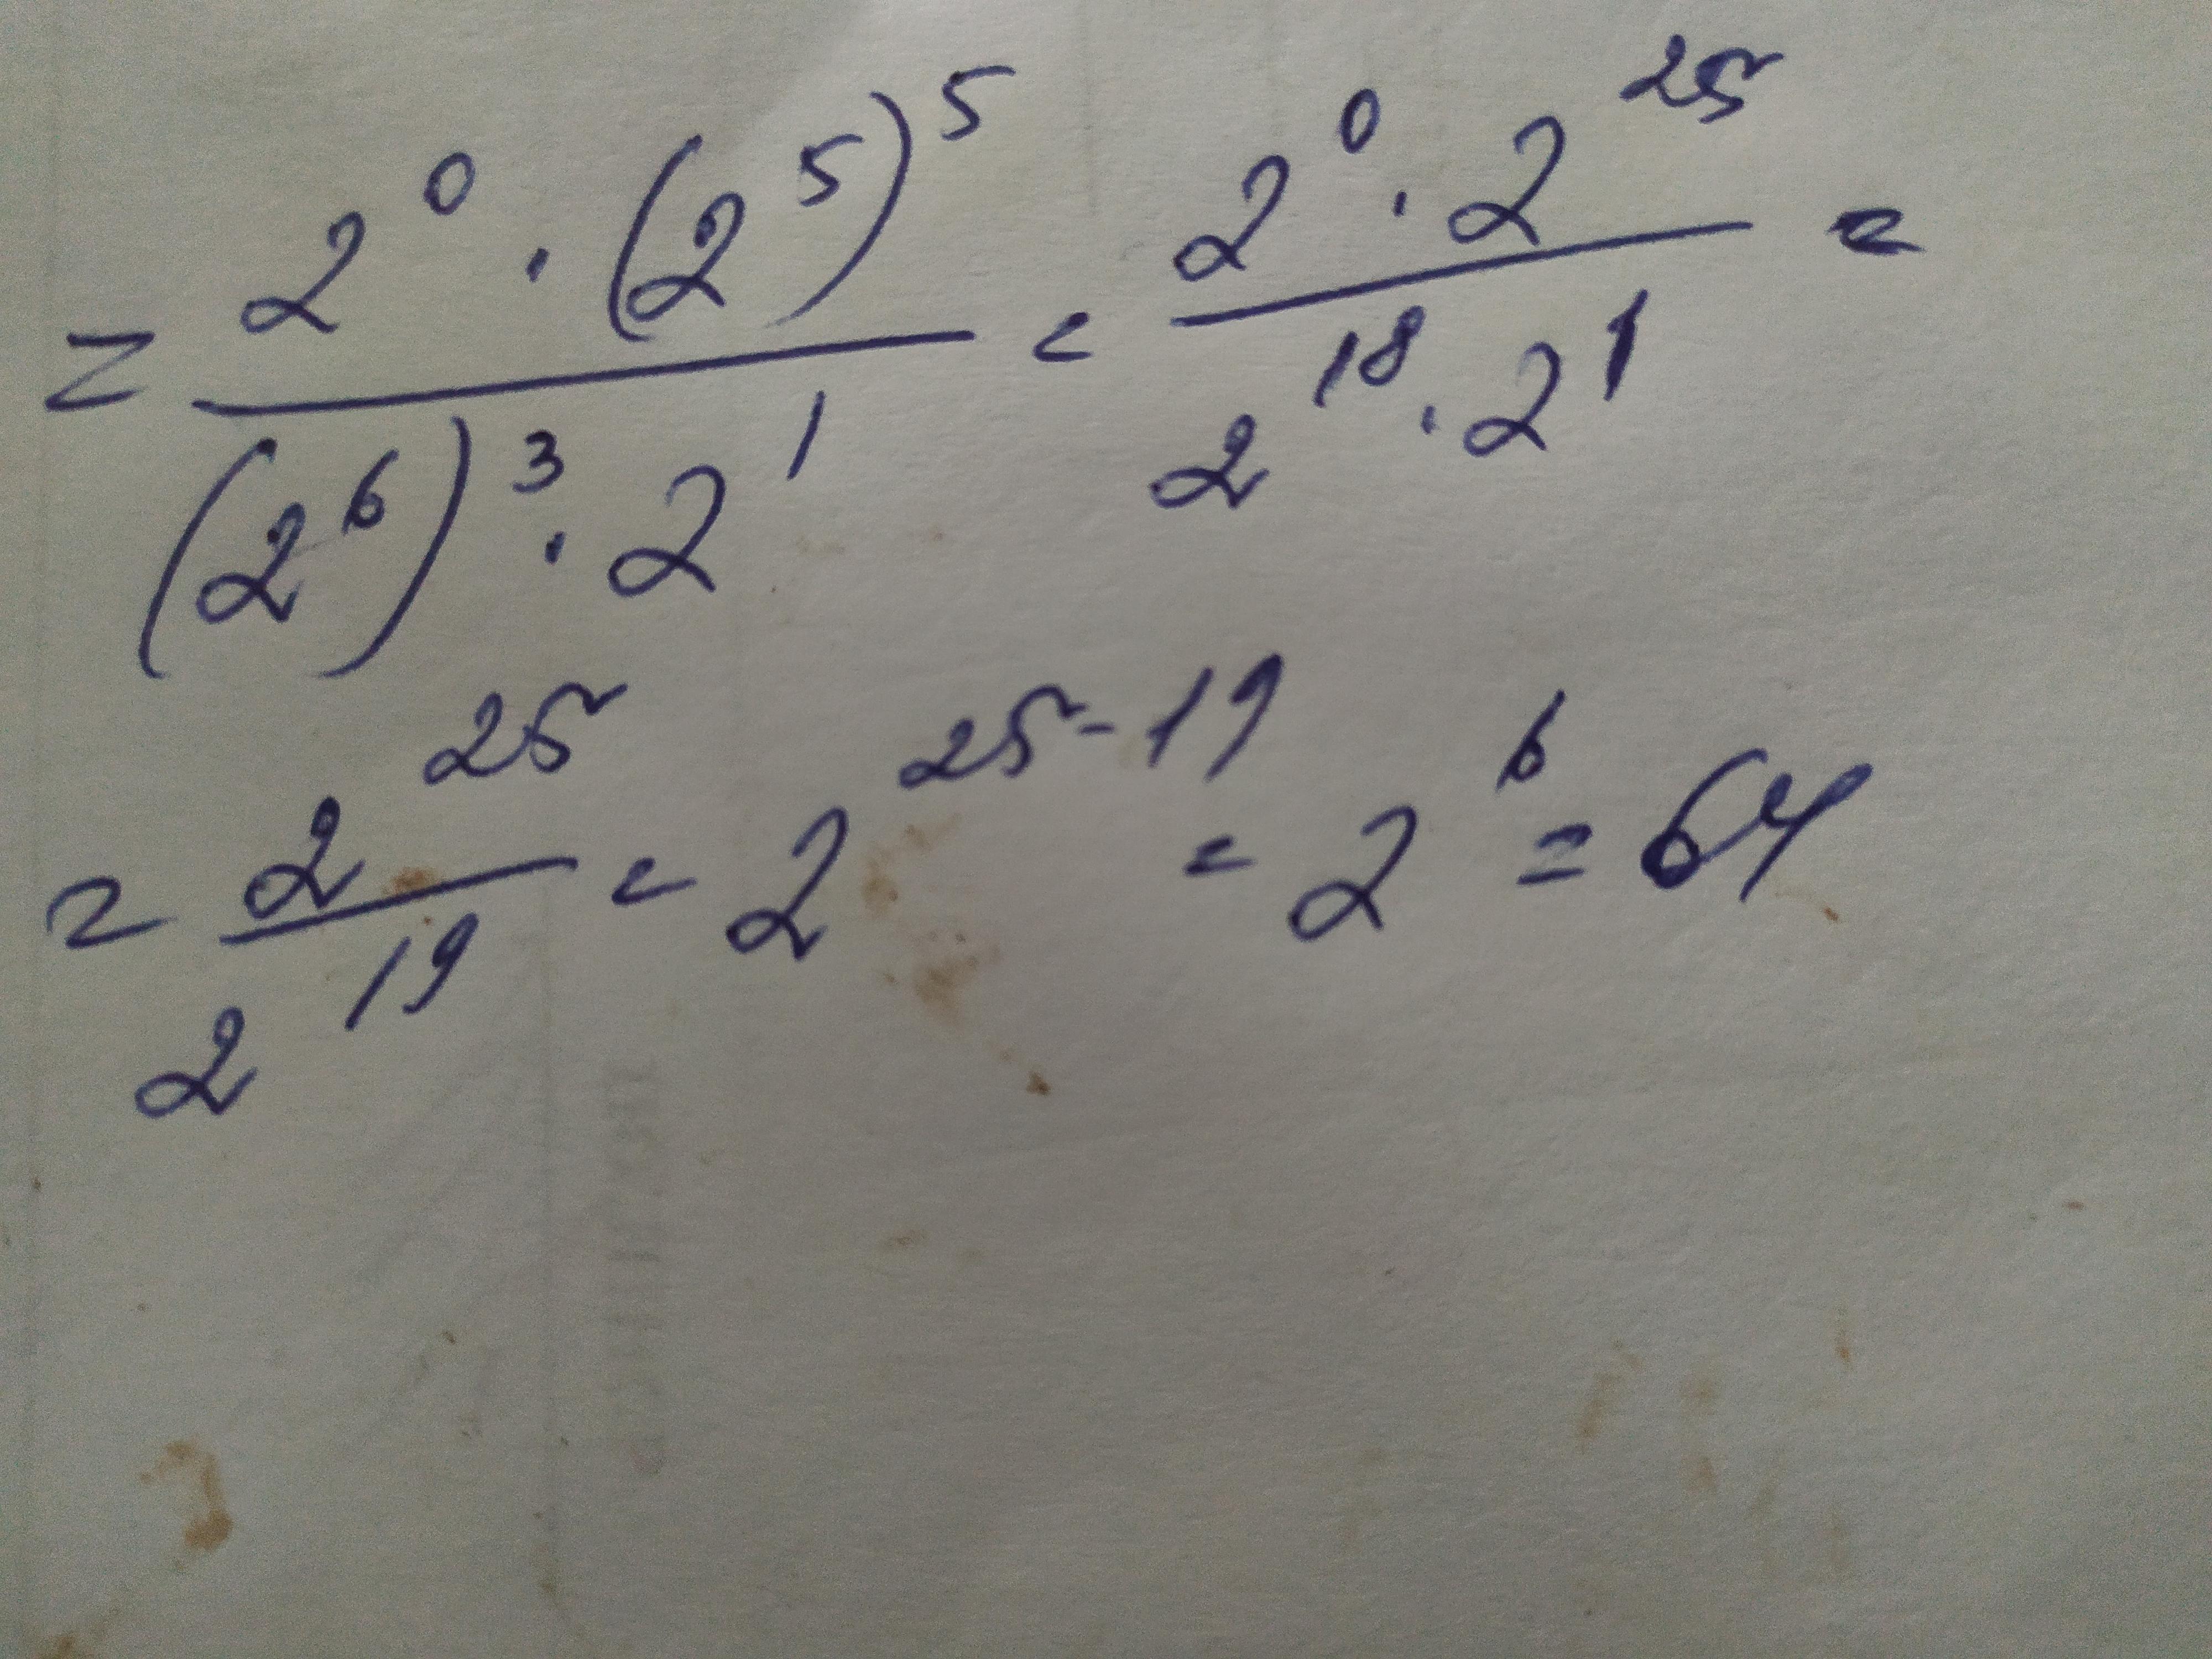 = 2⁰ · (2⁵)⁵ / (2⁶)³ · 2¹ = 2⁰ · 2²⁵ / 2¹⁸ · 2¹ =
= 2²⁵ / 2¹⁹ = 2²⁵⁻¹⁹ = 2⁶ = 64